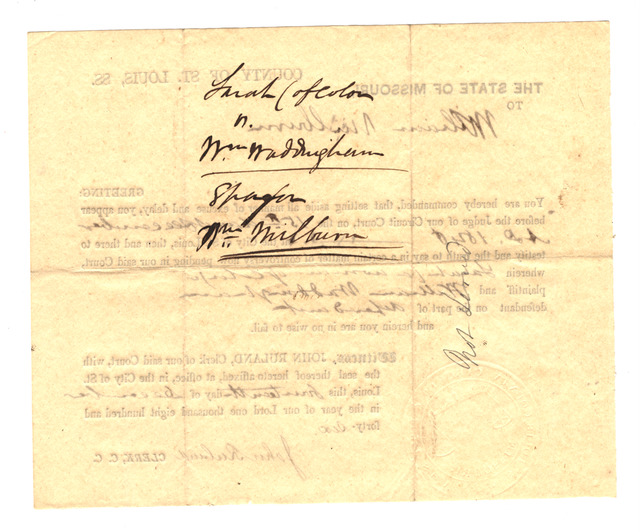 Sarah (of Color
v.
Wm Waddingham
Spa for
Wm Milburn
Not served
THE STATE OF MISSOURI
COUNTY OF ST. LOUIS, SS.
TO
William Milburn
GREETING:
You are hereby commanded, that setting aside all manner of excuse and delay, you appear
before the Judge of our Circuit Court, on the December
A.D. 1846 Louis, then and there to
testify and the truth to say in a certain matter of controversy pending in our said Court,
wherein
plaintiff and William Waddingham
defendant on the part of defendant
and herein you are in no wise to fail.
Witness, JOHN RULAND, Clerk of our said Court, with
the seal thereof hereto affixed, at office, in the City of St.
Louis, this fourteenth day of December
in the year of our Lord one thousand eight hundred and
forty-six
John Ruland CLERK, C. C.